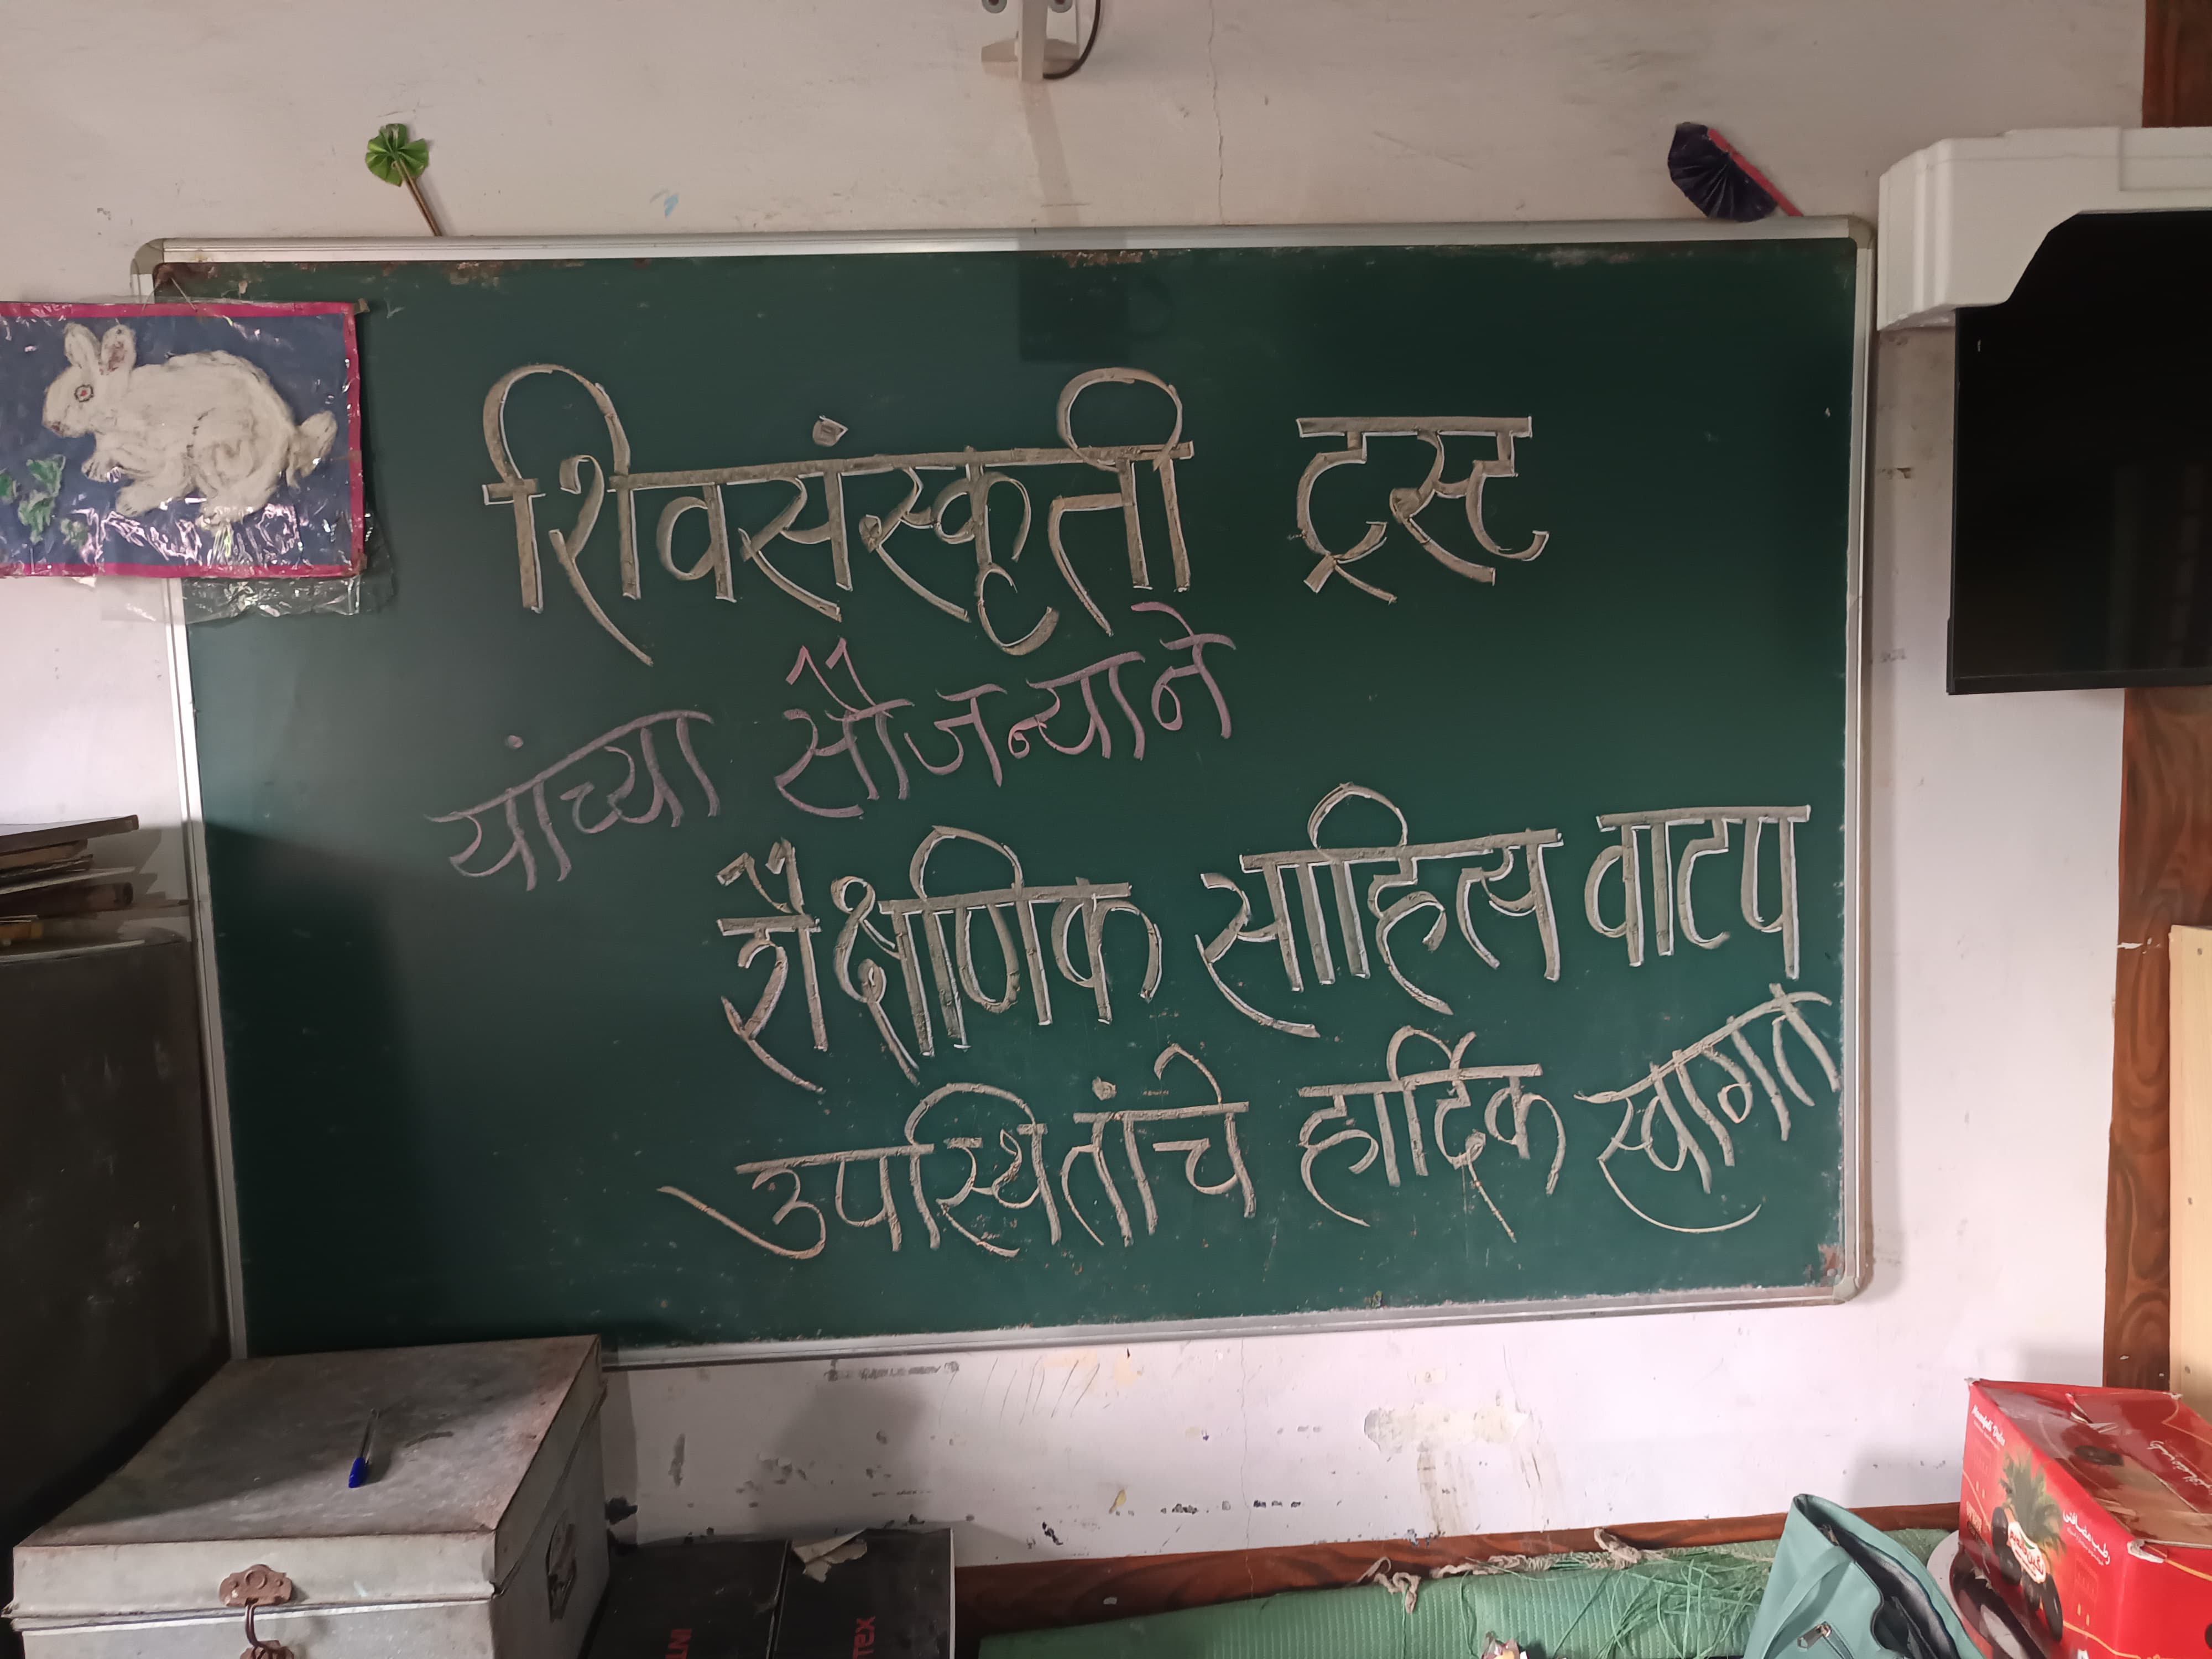 शिवसंस्कृती ट्रस्ट
यांच्या सौजन्याने
शैक्षणिक साहित्य वाटप
उपस्थितांचे हार्दिक स्वागत